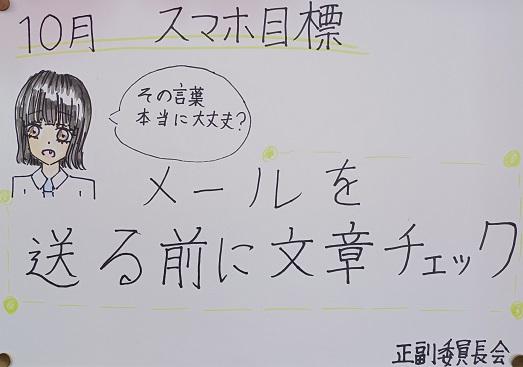 10月 スマホ目標
その言葉
本当に大丈夫?
メールを
送る前に文章チェック
正副委員長会